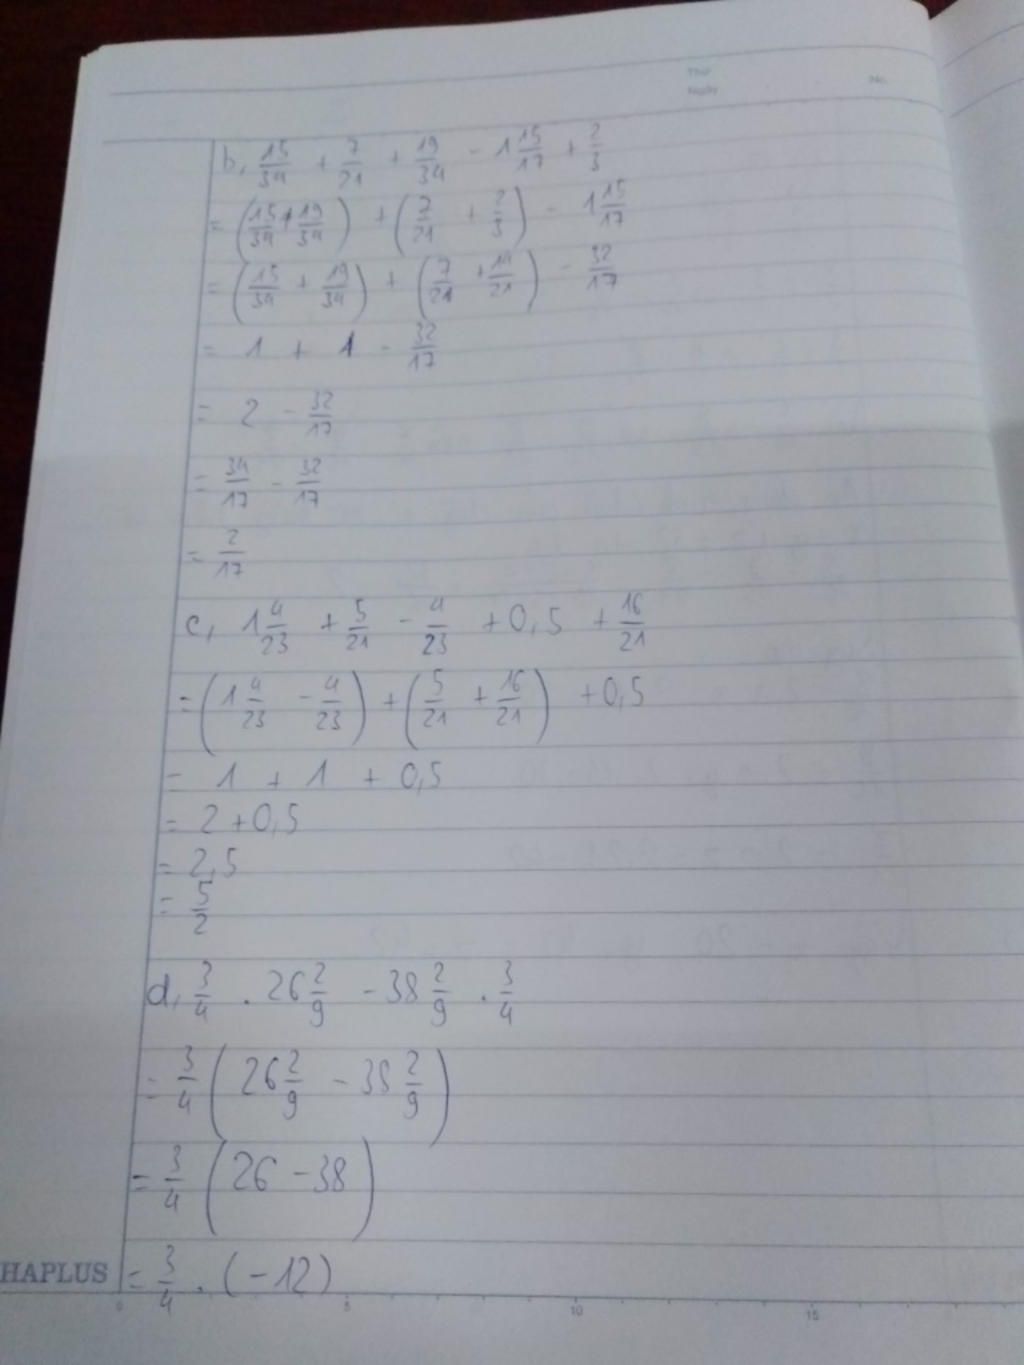 Thứ
Ngày
No.
b, 15/34 + 7/21 + 19/34 - 1 15/17 + 2/3
= (15/34 + 19/34) + (7/21 + 2/3) - 1 15/17
= (15/34 + 19/34) + (7/21 + 14/21) - 32/17
= 1 + 1 - 32/17
= 2 - 32/17
= 34/17 - 32/17
= 2/17
c, 1 4/23 + 5/21 - 4/23 + 0,5 + 16/21
= (1 4/23 - 4/23) + (5/21 + 16/21) + 0,5
= 1 + 1 + 0,5
= 2 + 0,5
= 2,5
= 5/2
d, 3/4 . 26 2/9 - 38 2/9 . 3/4
= 3/4 (26 2/9 - 38 2/9)
= 3/4 (26 - 38)
HAPLUS = 3/4 . (-12)
0 5 10 15